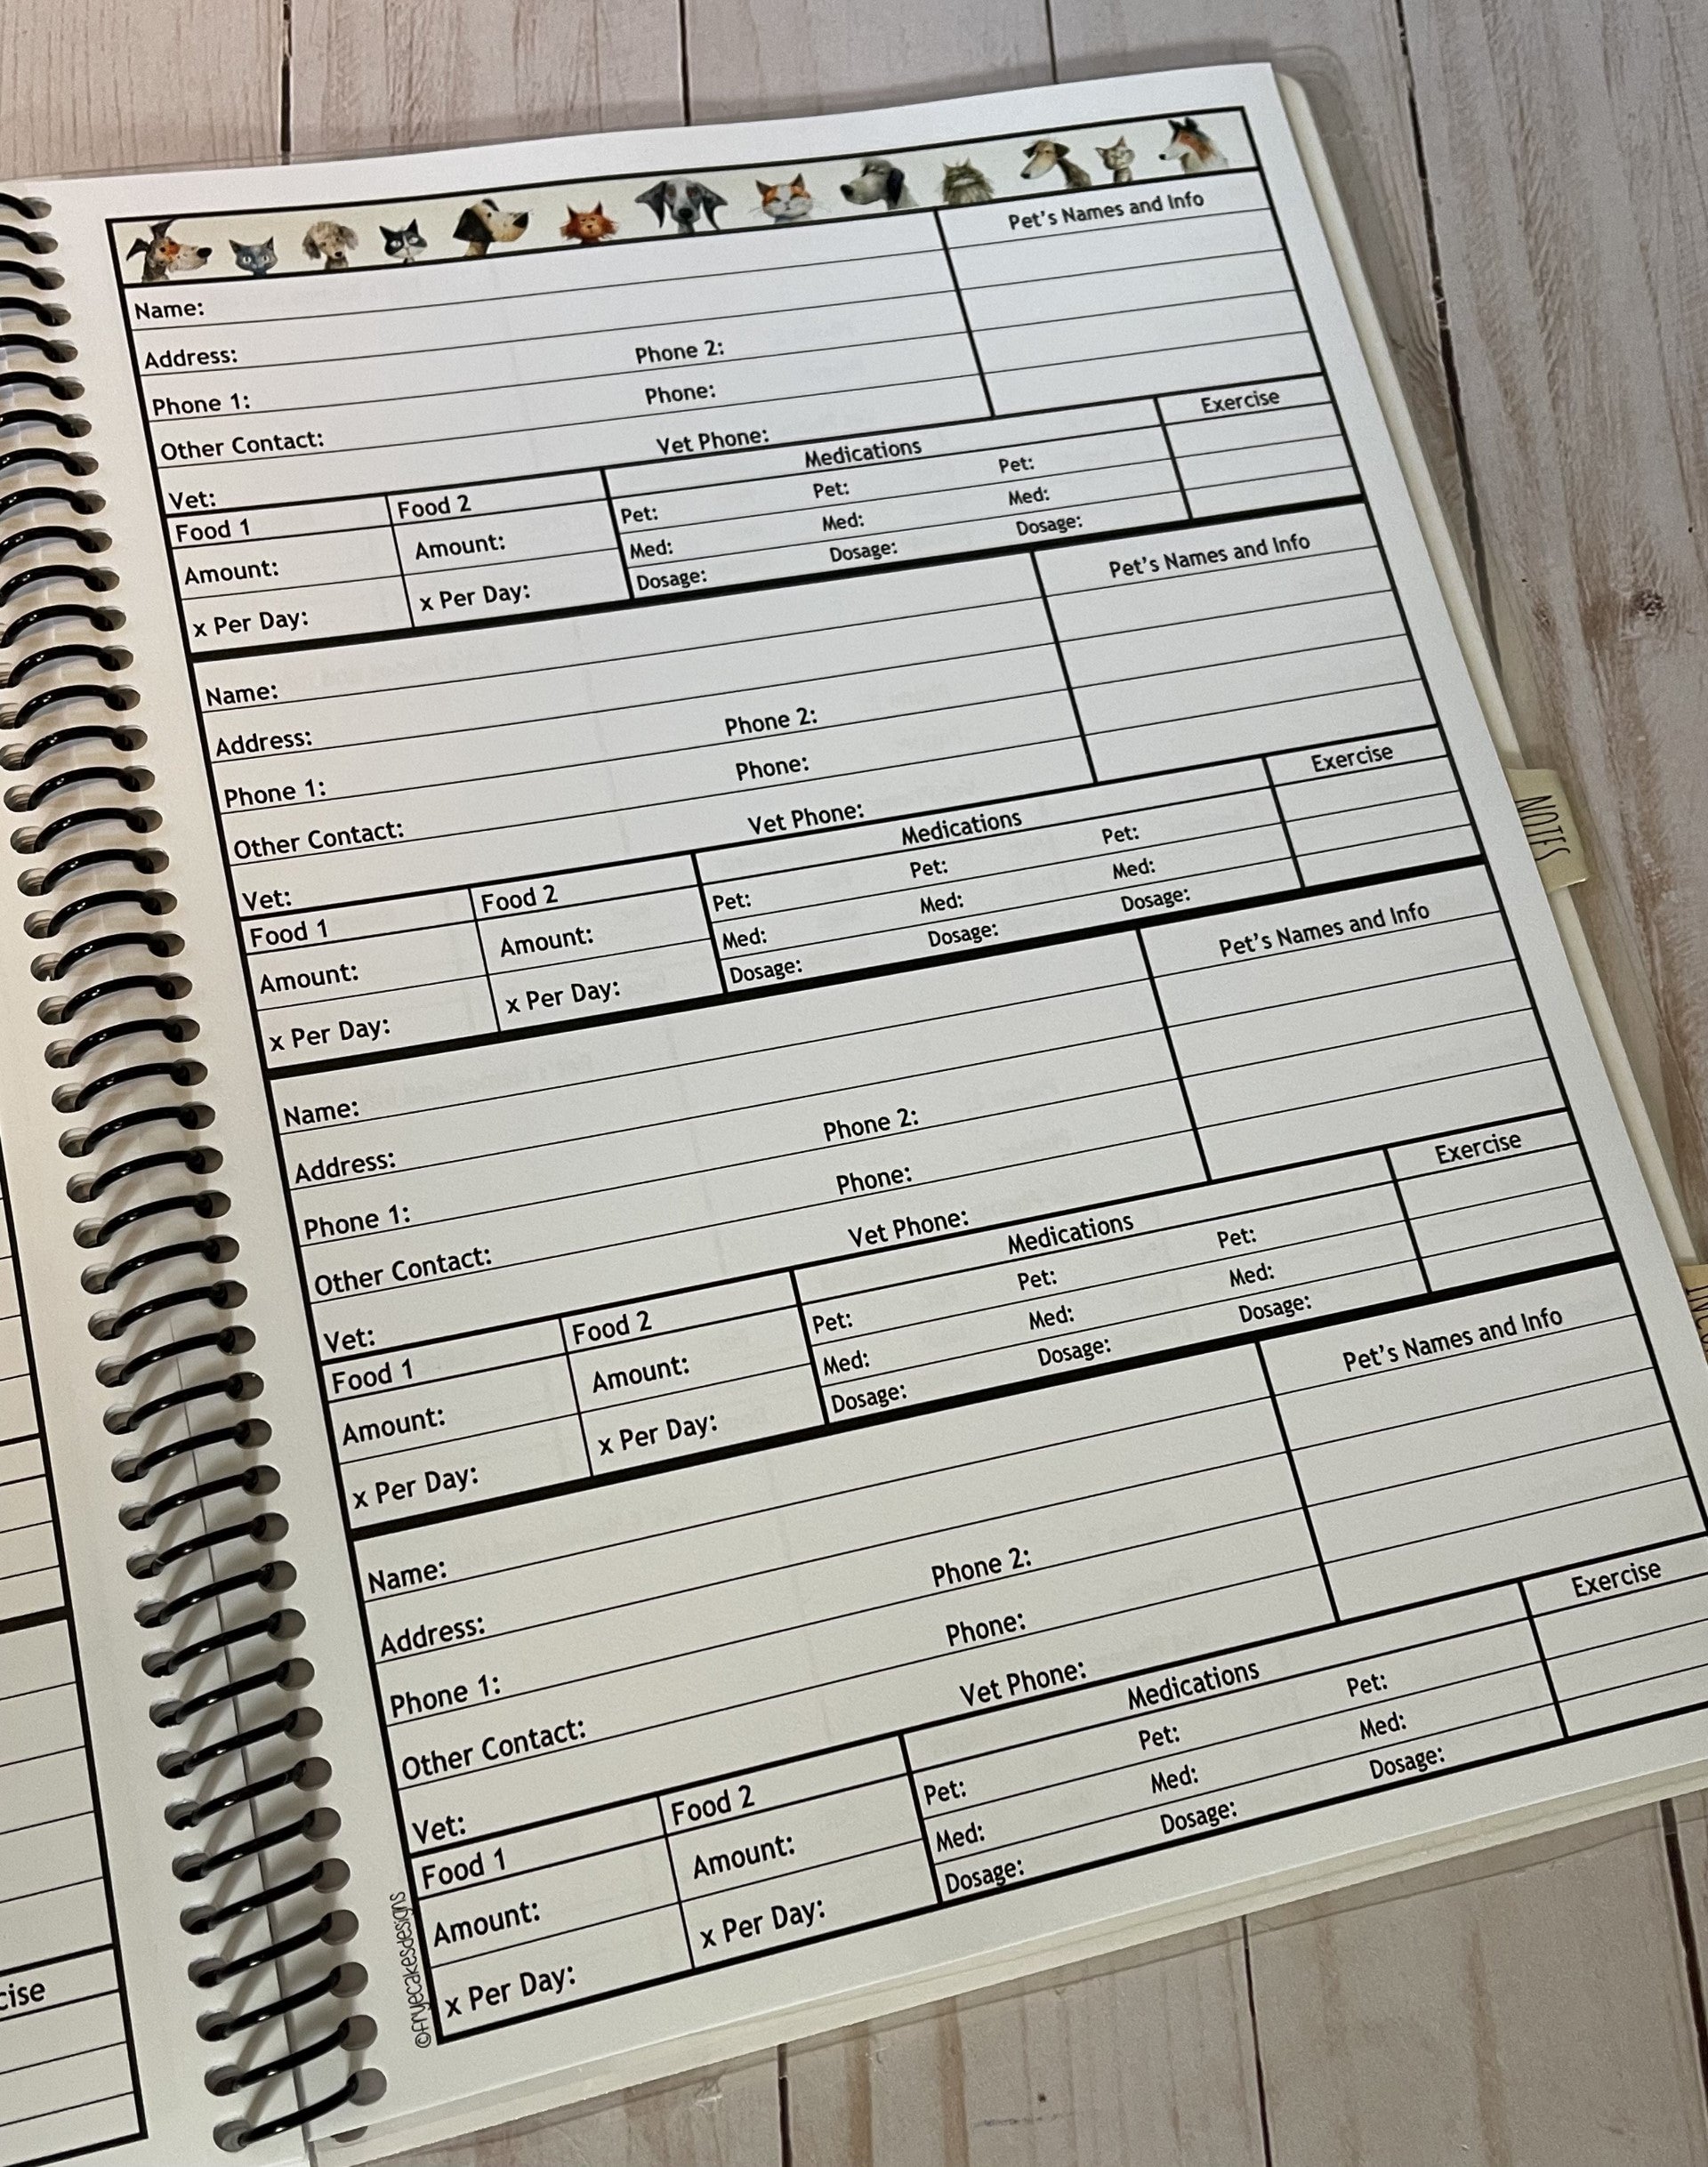 Pet's Names and Info
Name:
Address:
Phone 1: Phone 2:
Other Contact: Phone:
Vet: Vet Phone:
Food 1 Food 2 Medications Exercise
Amount: Amount: Pet: Pet: Pet:
x Per Day: x Per Day: Med: Med: Med:
Dosage: Dosage: Dosage:
Pet's Names and Info
Name:
Address:
Phone 1: Phone 2:
Other Contact: Phone:
Vet: Vet Phone:
Food 1 Food 2 Medications Exercise
Amount: Amount: Pet: Pet: Pet:
x Per Day: x Per Day: Med: Med: Med:
Dosage: Dosage: Dosage:
Pet's Names and Info
Name:
Address:
Phone 1: Phone 2:
Other Contact: Phone:
Vet: Vet Phone:
Food 1 Food 2 Medications Exercise
Amount: Amount: Pet: Pet: Pet:
x Per Day: x Per Day: Med: Med: Med:
Dosage: Dosage: Dosage:
Pet's Names and Info
Name:
Address:
Phone 1: Phone 2:
Other Contact: Phone:
Vet: Vet Phone:
Food 1 Food 2 Medications Exercise
Amount: Amount: Pet: Pet: Pet:
x Per Day: x Per Day: Med: Med: Med:
Dosage: Dosage: Dosage:
©fryecakesdesigns
NOTES
cise